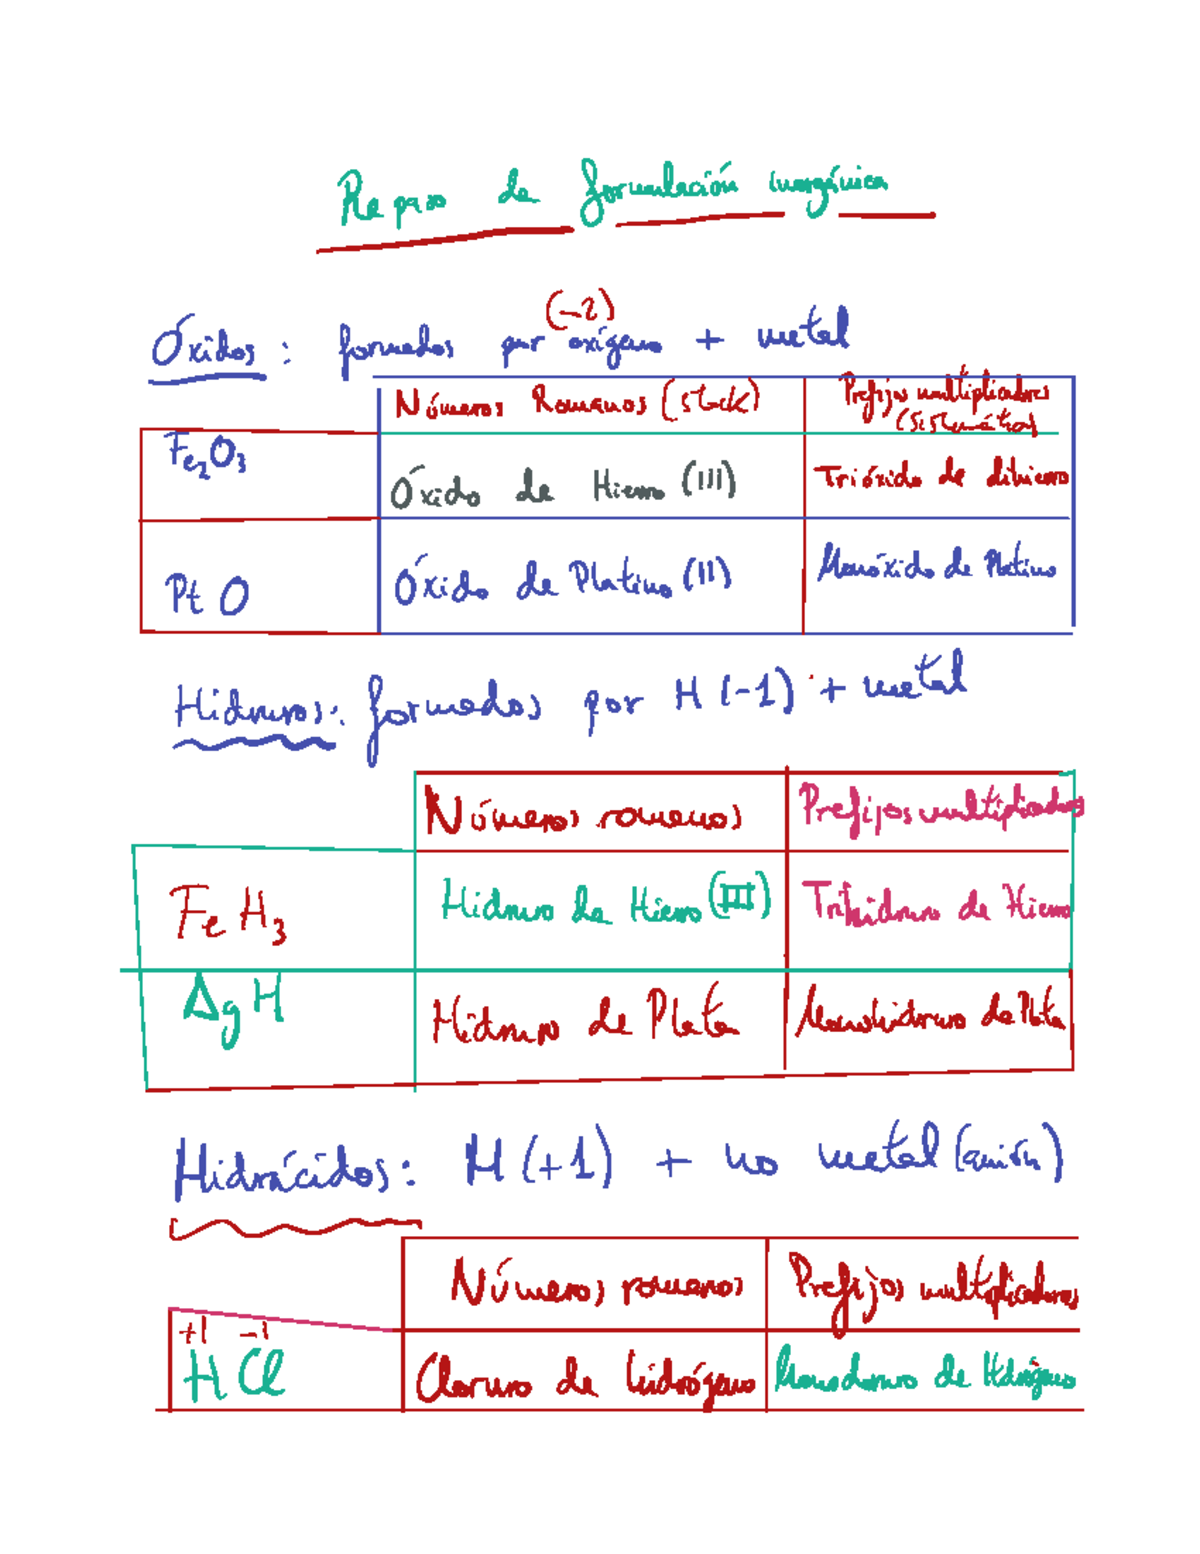 Repaso de formulación inorgánica
(-2)
Óxidos: formados por oxígeno + metal
Números Romanos (stock) Prefijos multiplicadores (sistemática)
Fe2O3 Óxido de Hierro (III) Trióxido de dihierro
PtO Óxido de Platino (II) Monóxido de Platino
Hidruros: formados por H (-1) + metal
Números romanos Prefijos multiplicadores
FeH3 Hidruro de Hierro (III) Trihidruro de Hierro
AgH Hidruro de Plata Monohidruro de Plata
Hidrácidos: H (+1) + no metal (anión)
Números romanos Prefijos multiplicadores
+1 -1
HCl Cloruro de hidrógeno Monocloruro de Hidrógeno